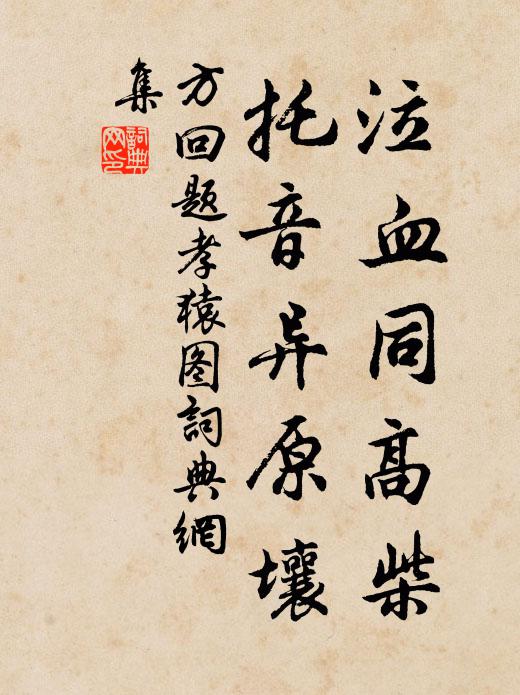 泣血同高柴
托音异原壤
方回题孝猿图詞典網
集
詞典
网印